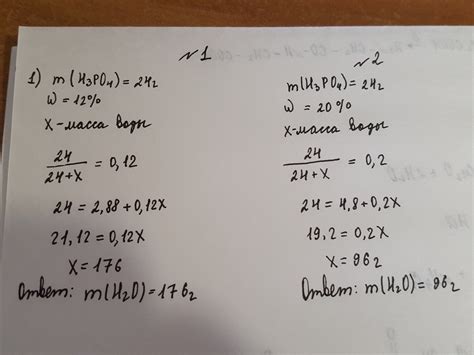 №1
1) m(H₃PO₄)=24г
W=12%
X-масса воды
24/(24+X) = 0,12
24 = 2,88+0,12X
21,12 = 0,12X
X = 176
Ответ: m(H₂O)=176г
№2
m(H₃PO₄)=24г
W = 20%
X-масса воды
24/(24+X) = 0,2
24 = 4,8+0,2X
19,2 = 0,2X
X = 96г
Ответ: m(H₂O)=96г